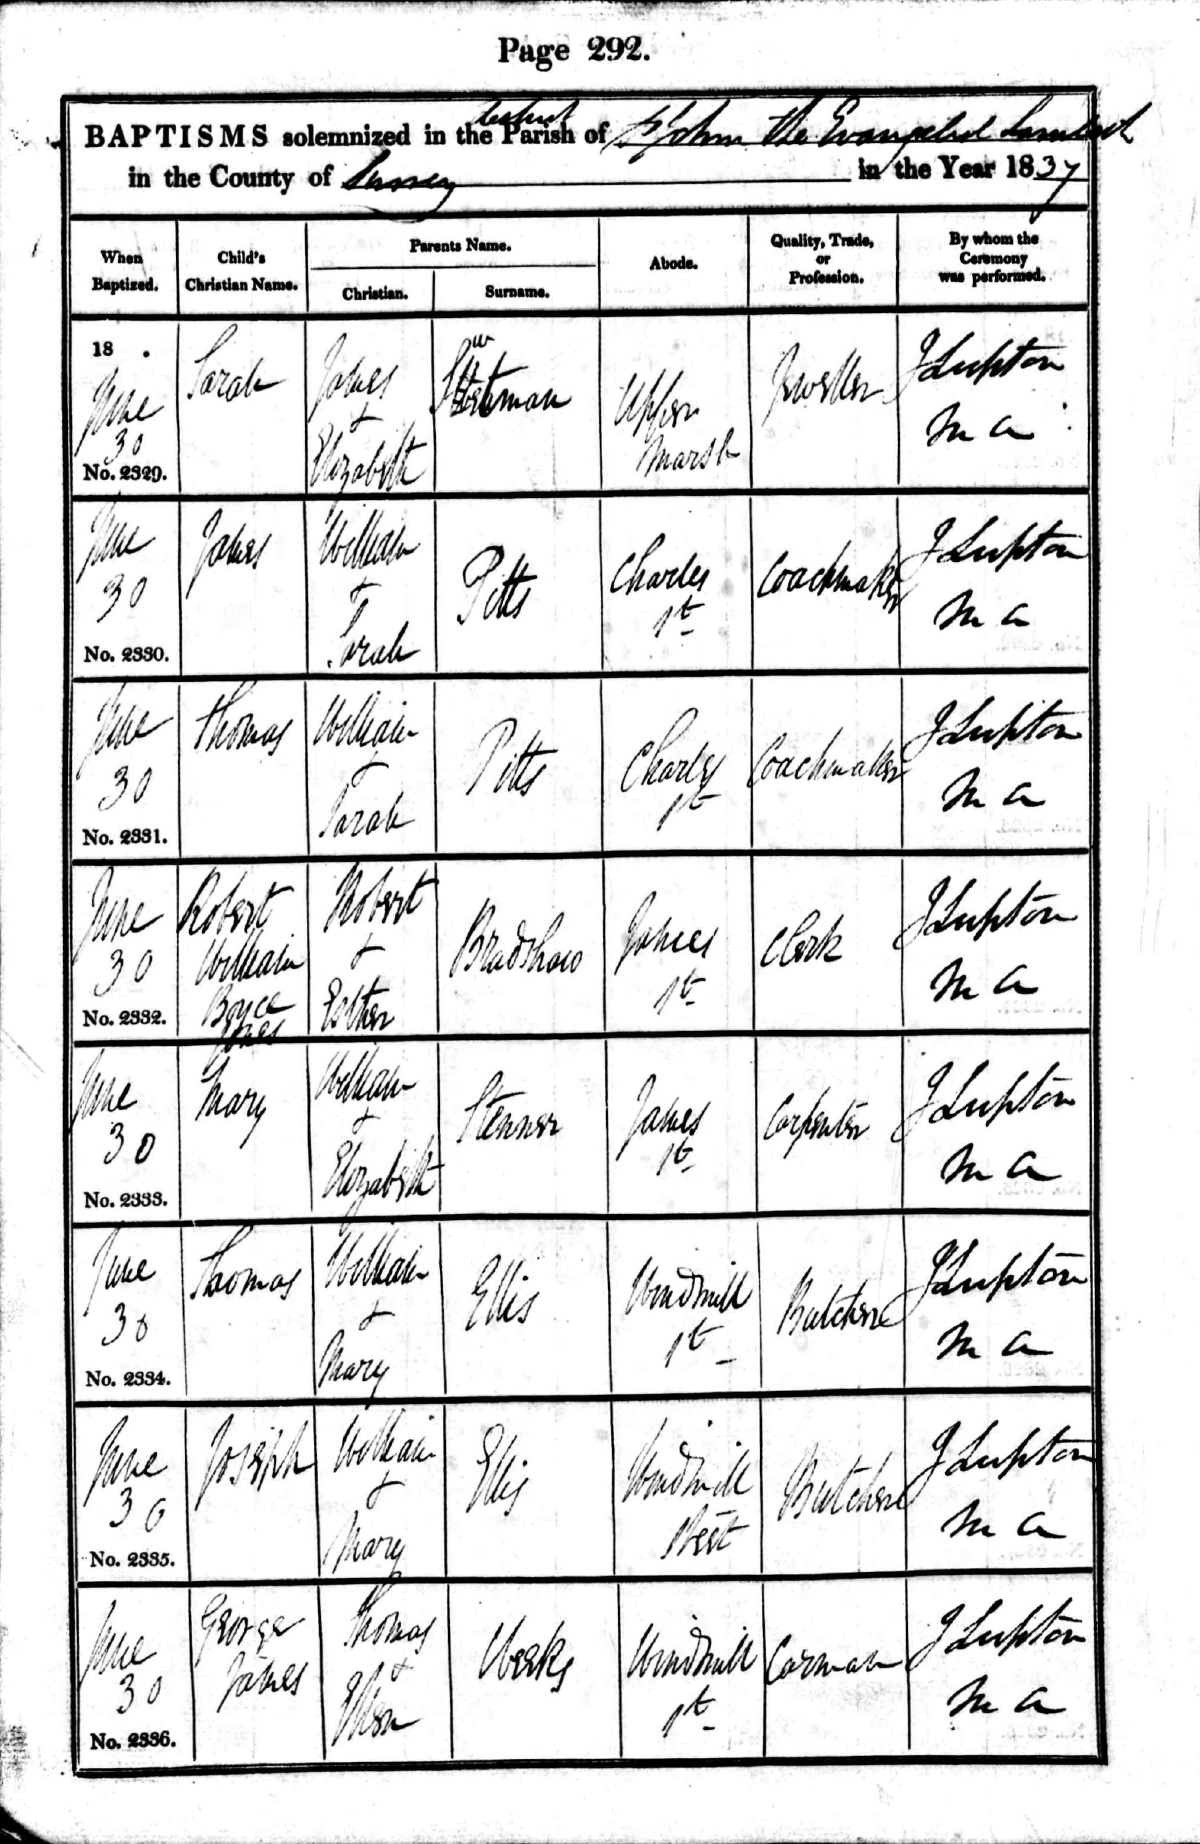 Page 292.
district
BAPTISMS solemnized in the Parish of St John the Evangelist Lambeth
in the County of Surrey in the Year 1837
When Baptized.
Child's Christian Name.
Parents Name.
Christian.
Surname.
Abode.
Quality, Trade, or Profession.
By whom the Ceremony was performed.
18 .
June
30
No. 2329.
Sarah
James
+
Elizabeth
Upper
Marsh
Jeweller
J Lupton
M A
June
30
No. 2330.
James
William
+
Sarah
Pitts
Charles
St
Coachmaker
J Lupton
M A
June
30
No. 2331.
Thomas
William
+
Sarah
Pitts
Charles
St
Coachmaker
J Lupton
M A
June
30
No. 2332.
Robert
William
Boyce
Jones
Robert
+
Esther
Bradshaw
James
St
Clerk
J Lupton
M A
June
30
No. 2333.
Mary
William
+
Elizabeth
Stenner
James
St
Carpenter
J Lupton
M A
June
30
No. 2334.
Thomas
William
+
Mary
Ellis
Windmill
St
Butcher
J Lupton
M A
June
30
No. 2335.
Joseph
William
+
Mary
Ellis
Windmill
Street
Butcher
J Lupton
M A
June
30
No. 2336.
George
James
Thomas
+
Ellen
Weeks
Windmill
St
Carman
J Lupton
M A